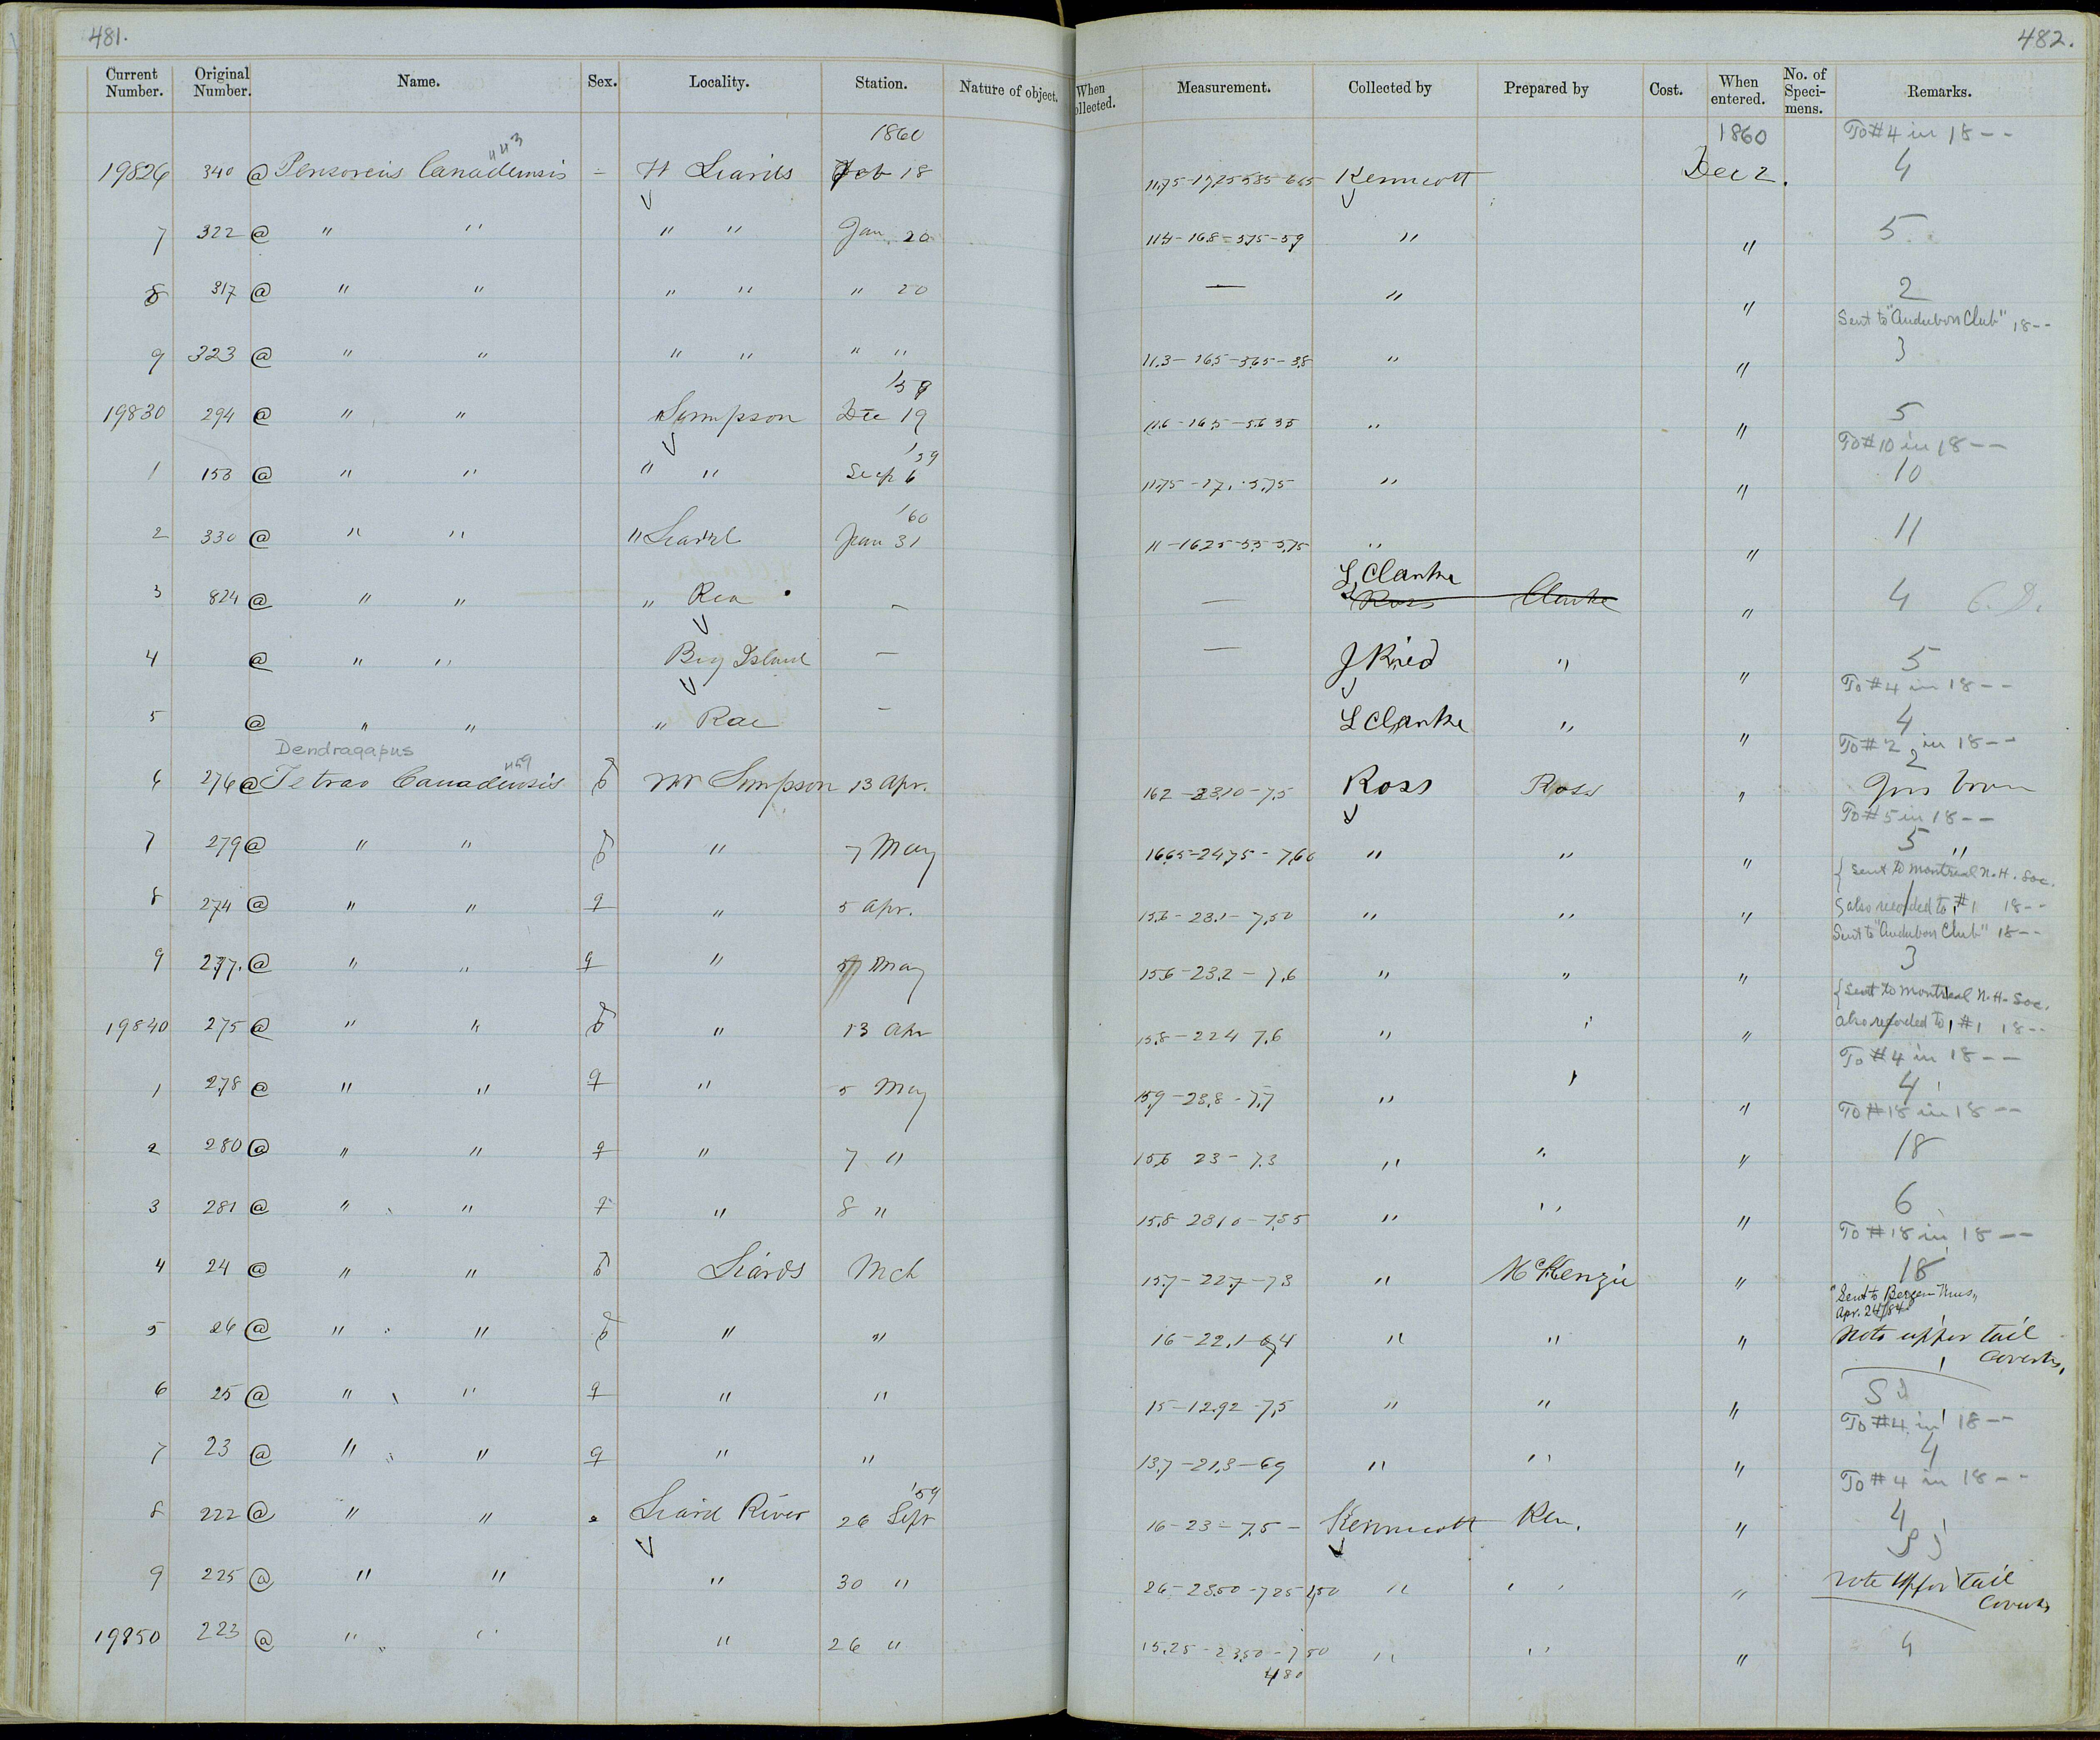 481.
482.
Current Number. Original Number. Name. Sex. Locality. Station. Nature of object. When ollected. Measurement. Collected by Prepared by Cost. When entered. No. of Speci- mens. Remarks.
1860 1860 To #4 in 18 --
443
19826 340 @ Perisoreus Canadensis - Ft Liards Feb 18 Kennicott Dec 2. 4
7 322 @ " " " " Jan 20 11.4-16.8-5.75-5.9 " " 5
8 317 @ " " " " " 20 — " " 2
Sent to "Audubon Club" 18--
9 323 @ " " " " " " 11.3-16.5-5.65-3.8 " " 3
'59
19830 294 @ " " " Simpson Dec 19 11.6-16.5-5.6 35 " " 5
'59 To #10 in 18 --
1 153 @ " " " " Sep 6 11.75-17.-5.75 " " 10
'60
2 330 @ " " " Liard Jan 31 11-16.25-5.5-5.75 " " 11
L Clarke
3 824 @ " " " Rea — — Ross Clarke " 4 C.D.
4 @ " " Big Island — — J Ried " " 5
To #4 in 18 --
5 @ " " " Rae — L Clarke " " 4
Dendragapus To #2 in 18 --
459 2
6 276 @ Tetrao Canadensis ♂ Simpson 13 Apr. 16.2-23.10-7.5 Ross Ross "
To #5 in 18 --
7 279 @ " " ♂ " 7 May 16.65-24.75-7.60 " " " 5 "
{ Sent to Montreal N.H. Soc.
8 274 @ " " ♀ " 5 Apr. 15.6-23.1-7.50 " " " { also recorded to #1 18--
Sent to "Audubon Club" 18--
9 277. @ " " ♀ " May 15.6-23.2-7.6 " " " 3
{ Sent to Montreal N.H. Soc.
19840 275 @ " " ♂ " 13 Apr 15.8-22.4 7.6 " " " also recorded to #1 18--
To #4 in 18 --
1 278 @ " " ♀ " 5 May 15.9-23.8-7.7 " " " 4
To #18 in 18 --
2 280 @ " " ♀ " 7 " 15.6 23-7.3 " " " 18
3 281 @ " " ♀ " 8 " 15.8-23.10-7.35 " " " 6
To #18 in 18 --
4 24 @ " " ♂ Liards Mch 15.7-22.7-7.3 " McKenzie " 18
"Sent to Bergen Mus"
Apr. 24/84
5 26 @ " " ♂ " " 16-22.1-6.4 " " " Note upper tail
coverts,
6 25 @ " " ♀ " " 15-12.92-7.5 " " "
To #4 in 18 --
7 23 @ " " ♀ " " 13.7-21.3-6.9 " " " 4
To #4 in 18 --
'59
8 222 @ " " Liard River 26 Sept 16-23-7.5- Kennicott Ken. " 4
9 225 @ " " " 30 " 26-23.50-7.25 " " " note upper tail
coverts
19850 223 @ " " " 26 " 15.25-23.50-7.50 " " " 4
480